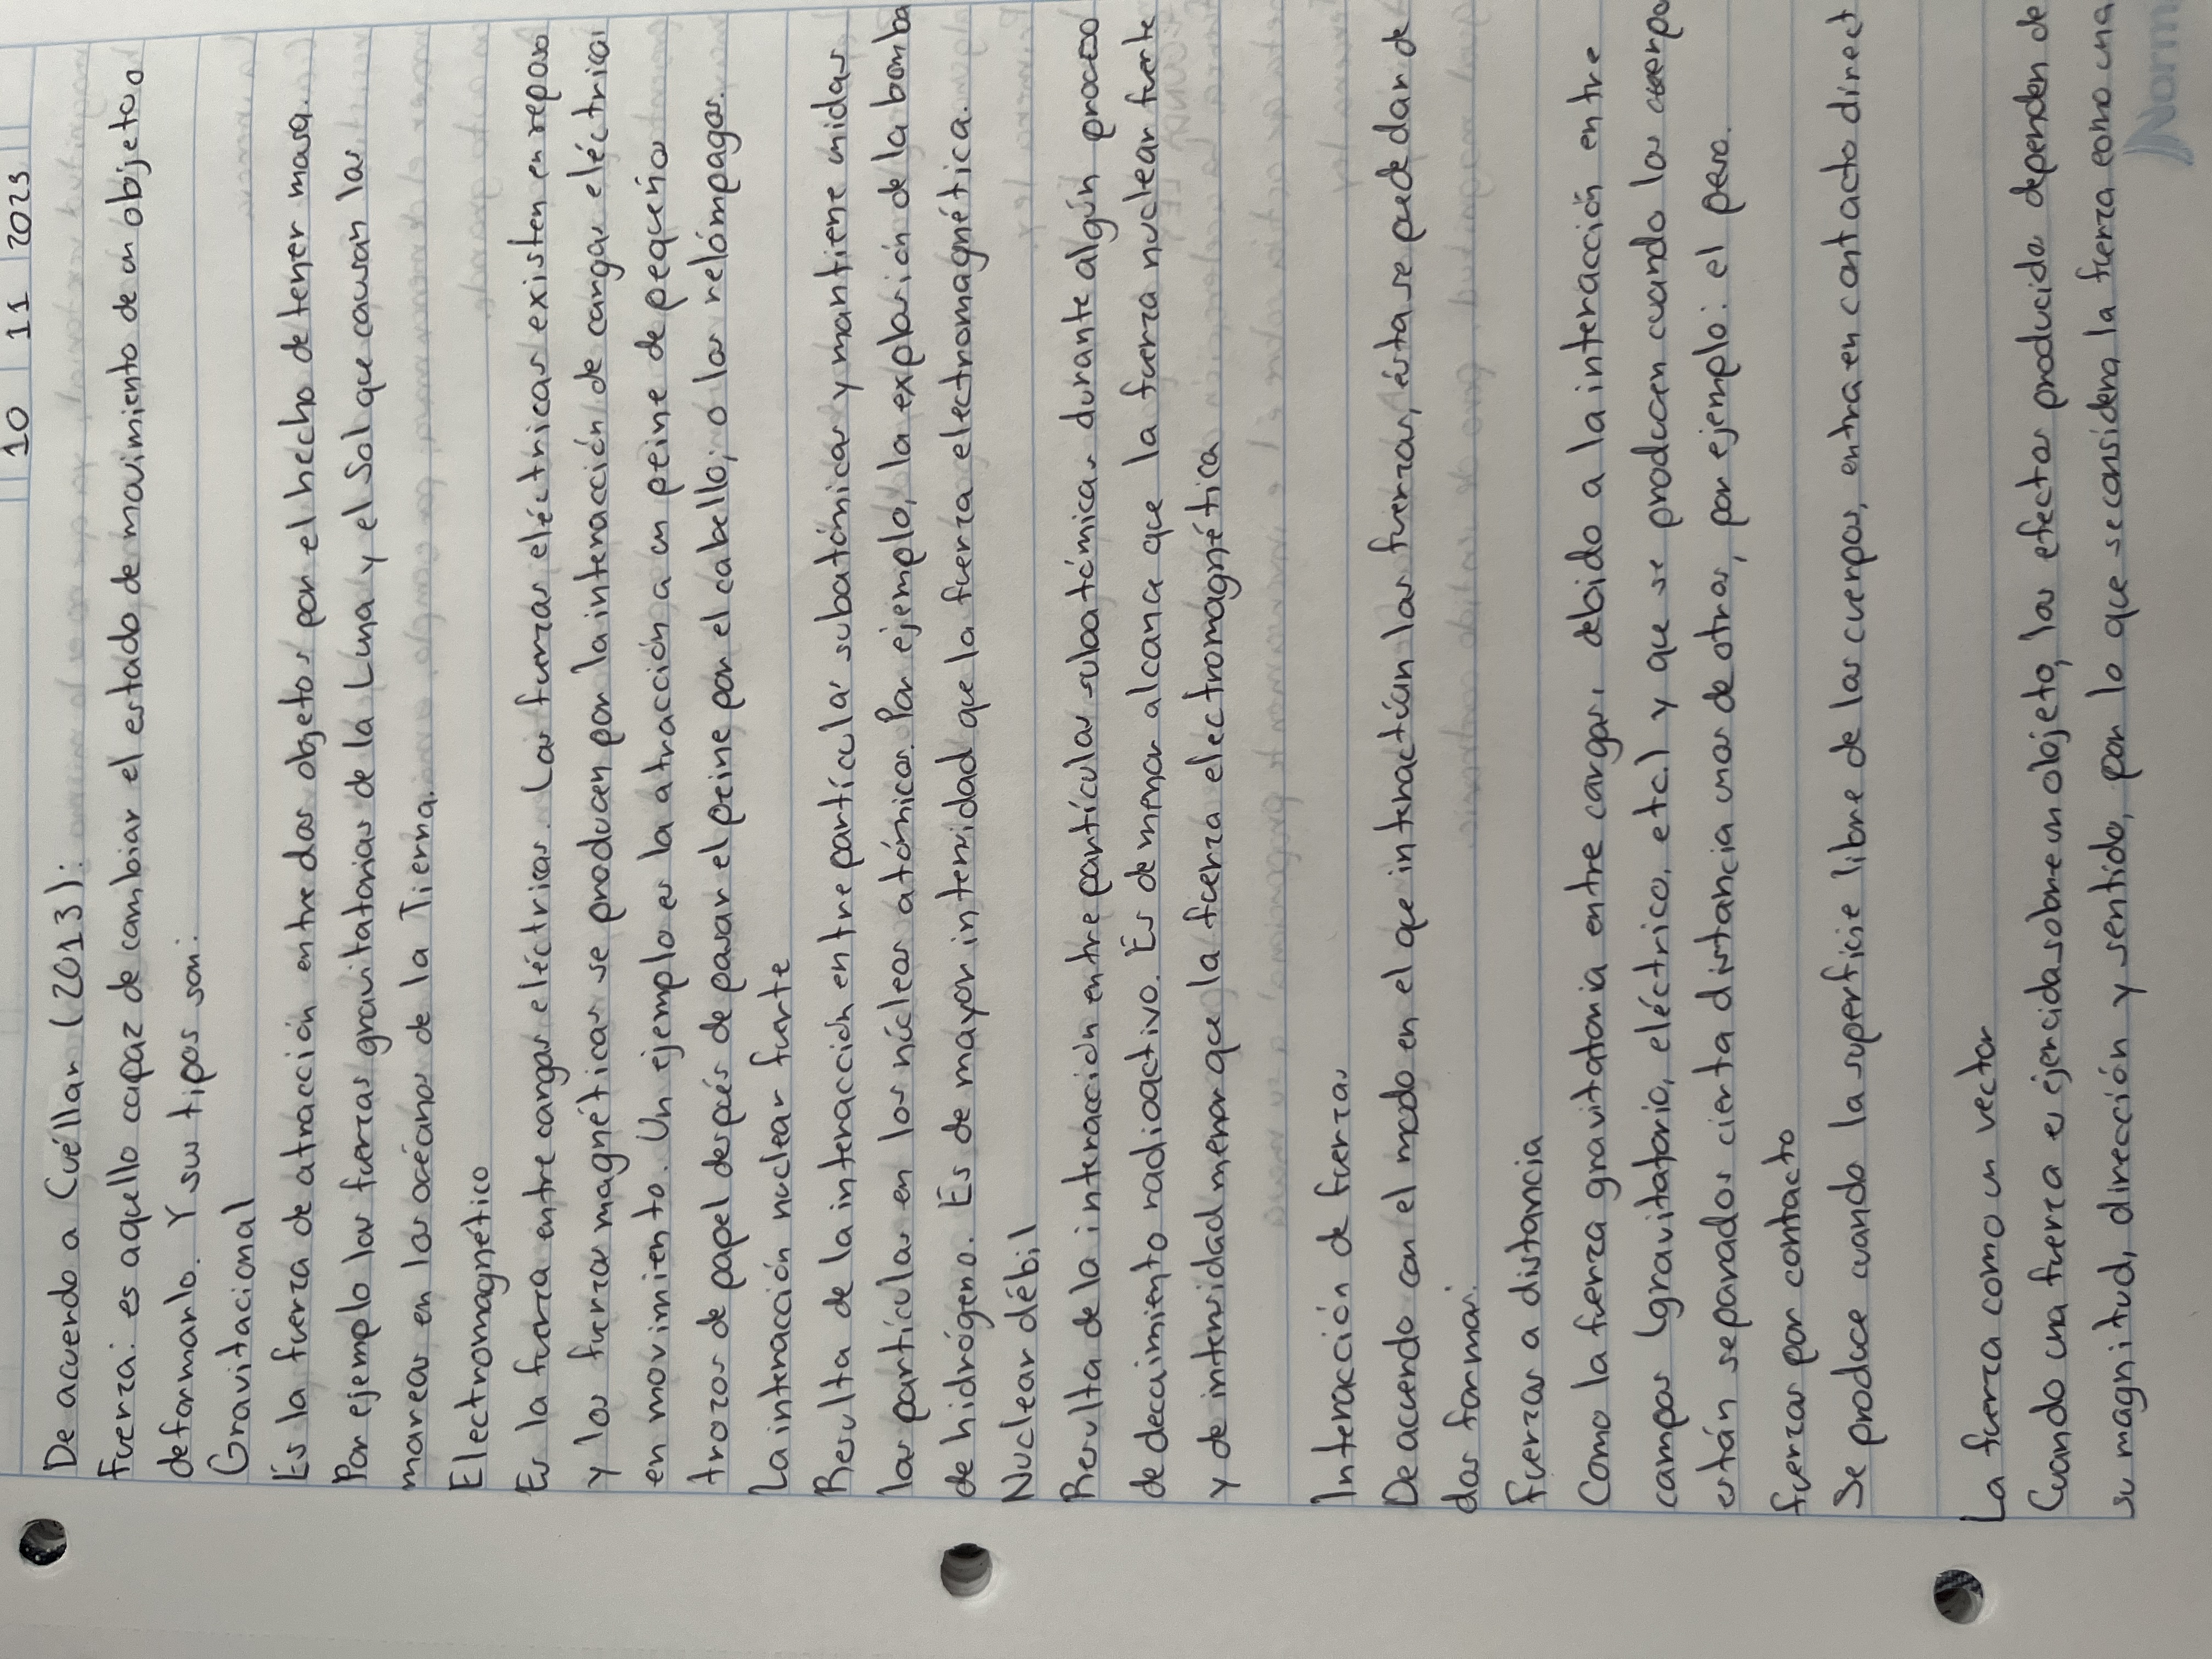 10 11 2023
De acuerdo a Cuéllar (2013):
Fuerza: es aquello capaz de cambiar el estado de movimiento de un objeto o
deformarlo. Y sus tipos son:
Gravitacional
Es la fuerza de atracción entre dos objetos por el hecho de tener masa.
Por ejemplo las fuerzas gravitatorias de la Luna y el Sol que causan las
mareas en los océanos de la Tierra.
Electromagnético
Es la fuerza entre cargas eléctricas. Las fuerzas eléctricas existen en reposo
y las fuerzas magnéticas se producen por la interacción de cargas eléctricas
en movimiento. Un ejemplo es la atracción a un peine de pequeños
trozos de papel después de pasar el peine por el cabello, o los relámpagos.
La interacción nuclear fuerte
Resulta de la interacción entre partículas subatómicas y mantiene unidas
las partículas en los núcleos atómicos. Por ejemplo, la explosión de la bomba
de hidrógeno. Es de mayor intensidad que la fuerza electromagnética.
Nuclear débil
Resulta de la interacción entre partículas subatómicas durante algún proceso
de decaimiento radioactivo. Es de menor alcance que la fuerza nuclear fuerte
y de intensidad menor que la fuerza electromagnética
Interacción de fuerzas
De acuerdo con el modo en el que interactúan las fuerzas, ésta se puede dar de
dos formas:
Fuerzas a distancia
Como la fuerza gravitatoria entre cargas, debido a la interacción entre
campos (gravitatorio, eléctrico, etc.) y que se producen cuando los
están separados cierta distancia unos de otros, por ejemplo: el peso.
fuerzas por contacto
Se produce cuando la superficie libre de los cuerpos, entra en contacto direct
La fuerza como un vector
Cuando una fuerza es ejercida sobre un objeto, los efectos producido dependen de
su magnitud, dirección y sentido, por lo que se considera la fuerza como una
Norm